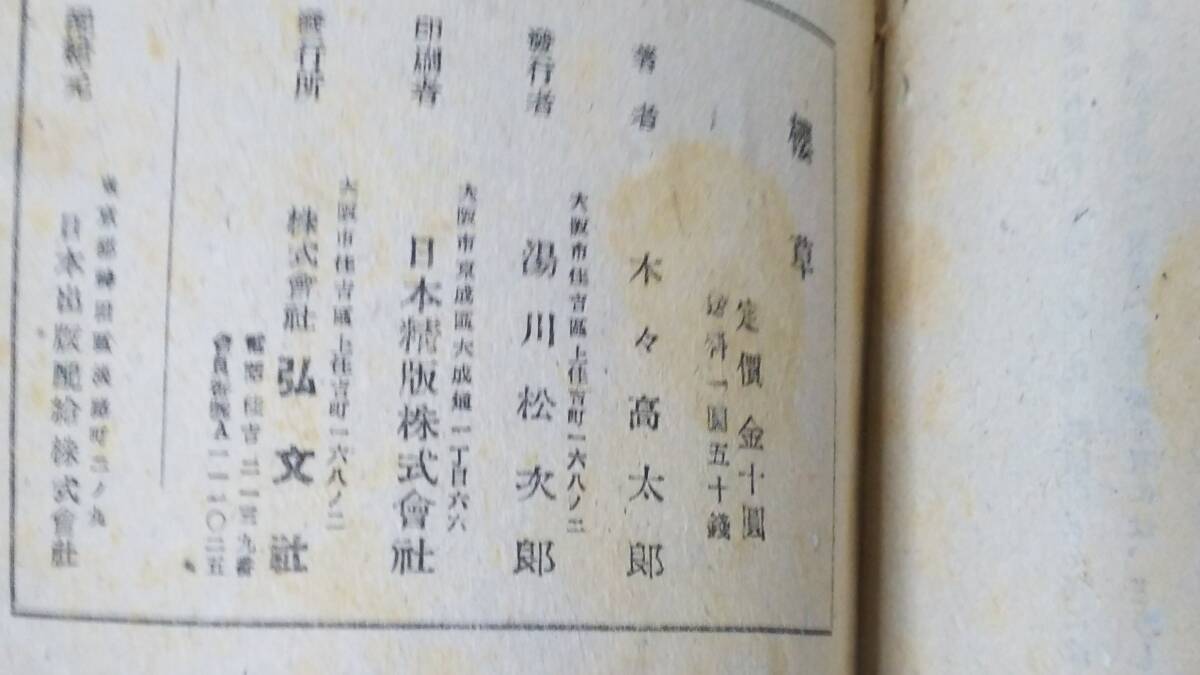 櫻草
定價 金十圓
送料一圓五十錢
著者 木々高太郎
大阪市住吉區上住吉町一六八ノ二
發行者 湯川松次郎
大阪市東成區大成通一丁目六六
印刷者 日本精版株式會社
大阪市住吉區上住吉町一六八ノ二
發行所 株式會社 弘文社
電話住吉二一三九番
會員番號A一一一〇二五
東京都神田區淡路町二ノ九
配給元 日本出版配給株式會社